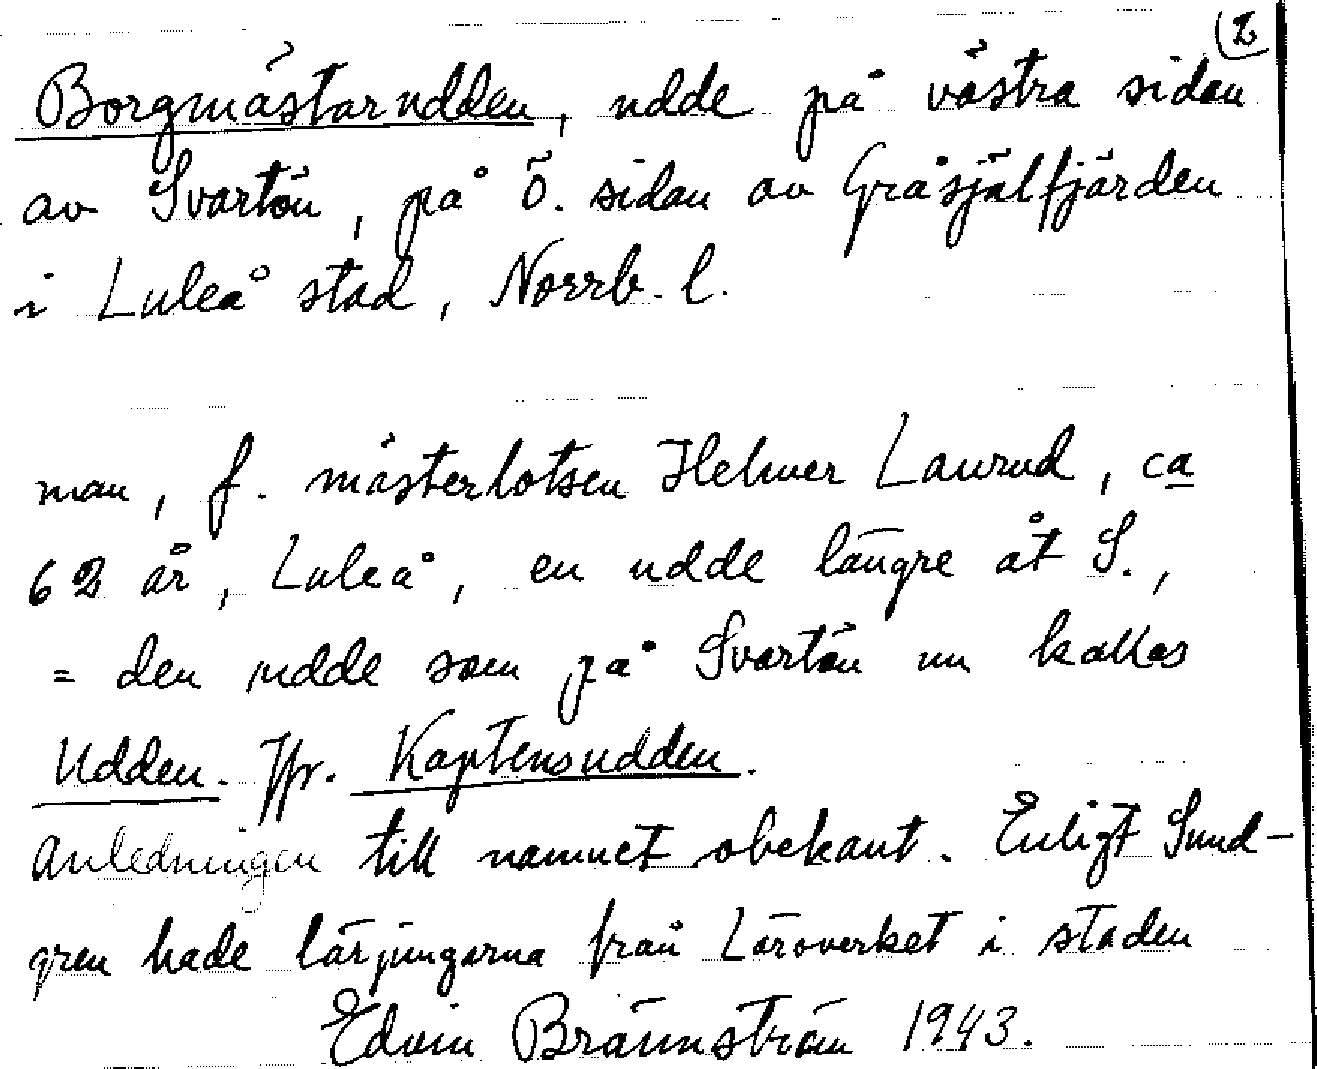 (2
Borgmästarudden, udde på västra sidan
av Svartön, på ö. sidan av Gråsjälfjärden
i Luleå stad, Norrb. l.
man, f. mästerlotsen Helmer Laurud, ca
62 år, Luleå, en udde längre åt S.,
= den udde som på Svartön nu kallas
Udden. Jfr. Kaptensudden.
Anledningen till namnet obekant. Enligt Sund-
gren hade lärjungarna från Läroverket i staden
Edvin Brännström 1943.